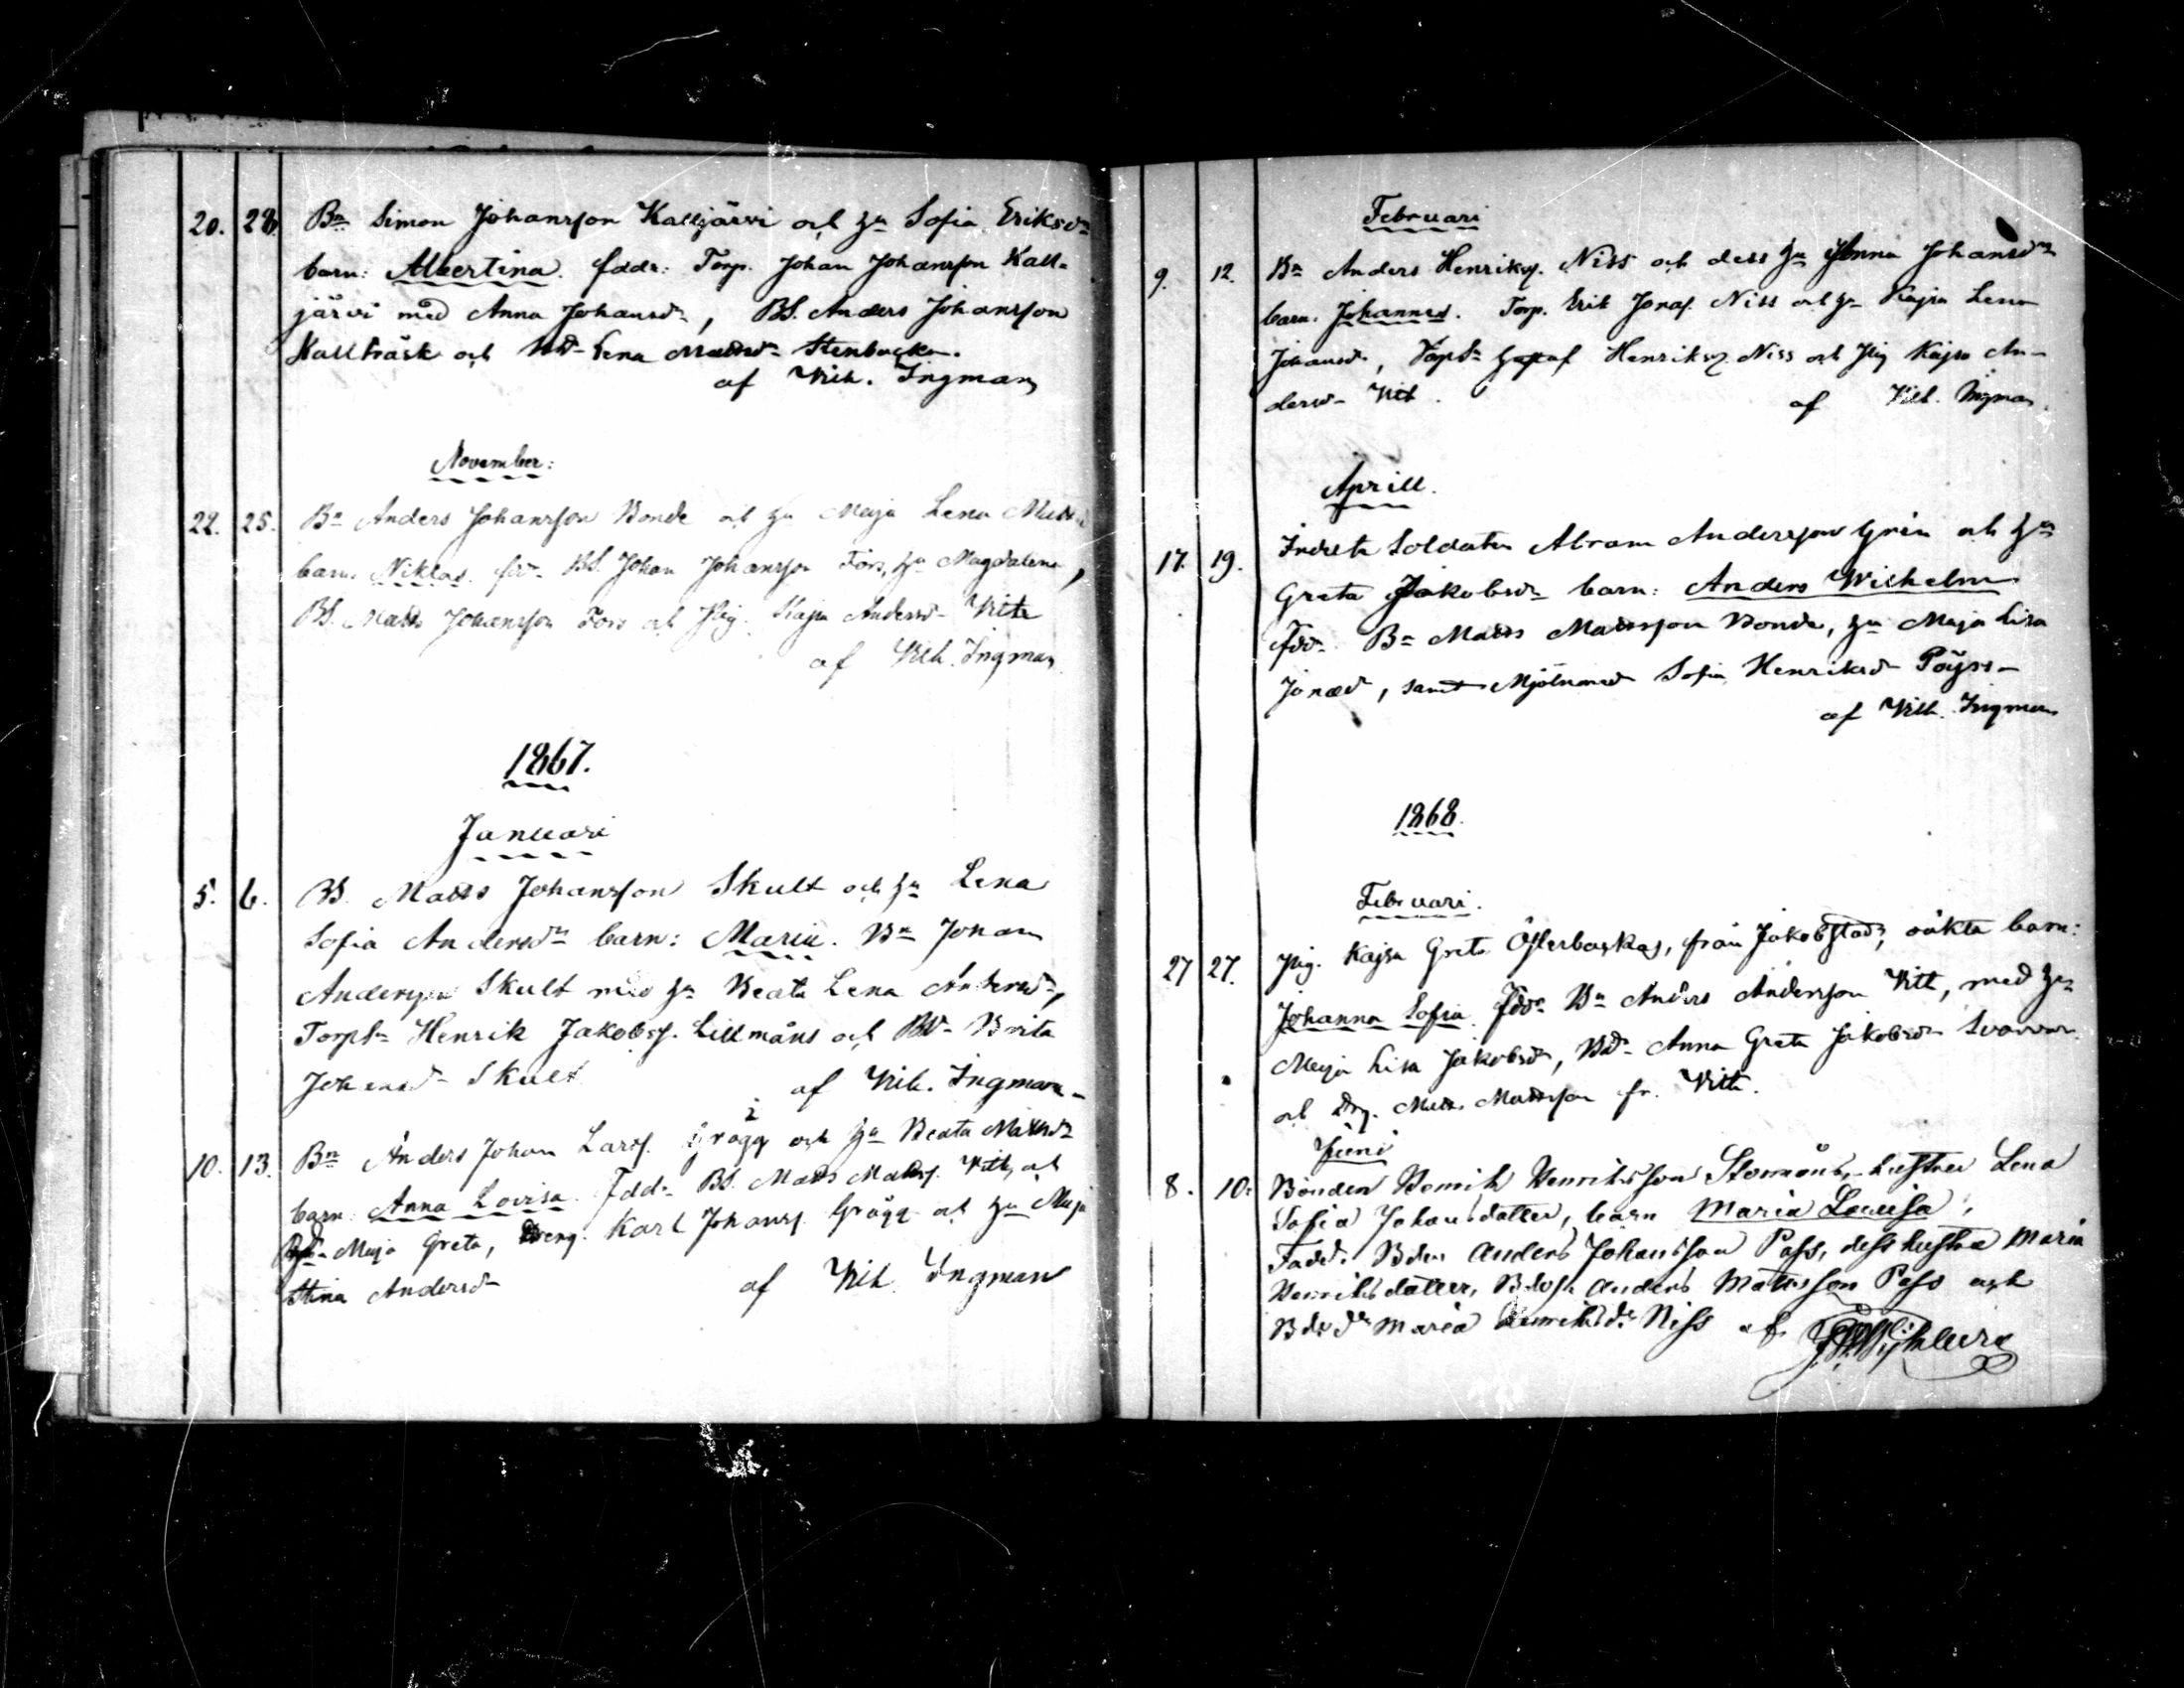 20. 28. Bn Simon Johansson Kalljärvi och hu Sofia Eriksdr
barn: Albertina. fddr: Torp. Johan Johansson Kall-
järvi med Anna Johansdr, BS. Anders Johansson
Kallträsk och Lena Mattsdr Stenbacka.
af Vilh. Ingman
November:
22. 25. Bn Anders Johansson Bonde och hu Maja Lena
barn. Niklas. fdr BS. Johan Johansson Fors, hu Magdalena,
BS. Matts Johansson Fors och Pig. Kajsa Andersdr Vitt
af Vilh. Ingman
1867.
Januari
5. 6. BS. Matts Johansson Skult och hu Lena
Sofia Andersdr barn: Maria. Bn Jonas
Andersson Skult med hu Beata Lena Andersdr,
Torpsn Henrik Jakobss. Lillmåns och Bdr Brita
Johansdr Skult af Vilh. Ingman
10. 13. Bn Anders Johan Larss. Grägg och hu Beata Mattsdr
barn: Anna Lovisa. Fddr BS. Matts Matss. Vitt, och
Maja Greta, Dreng. Karl Johanss. Grägg och hu Maja
Stina Andersdr af Vilh. Ingman
Februari
9. 12. Bn Anders Henrikss. Niss och dess hu Anna Johansdr
barn. Johannes. Torp. Erik Jonass. Niss och hu Kajsa Lena
Johansdr, Torpsn Gustaf Henrikss. Niss och Pig Kajsa An-
dersdr Vitt. af Vilh. Ingman
Aprill.
17. 19. Indelta Soldaten Abram Andersson Grén och hu
Greta Jakobsdr barn: Anders Wilhelm
fdr Bn Matts Mattsson Bonde, hu Maja Lisa
Jonæd, samt Sofia Henriksdr Pöyss
af Vilh. Ingman
1868.
Februari.
27 27. Pig. Kajsa Greta Österbackas, från Jakobstad, oäkta barn:
Johanna Sofia. fddr Bn Anders Andersson Vitt, med hu
Maja Lisa Jakobsdr, Bdr Anna Greta Jakobsdr Svarvar
och Drg. Matts Mattsson fr. Vitt.
Juni
8. 10. Bonden Henrik Henriksson Stormåns, hustru Lena
Sofia Johansdotter, barn Maria Lovisa,
Fadd. Bden Anders Johansson Pass, dess hustru Maria
Henriksdotter, Bdesn Anders Mattsson Pass och
Bdedr Maria Henriksdr Niss af